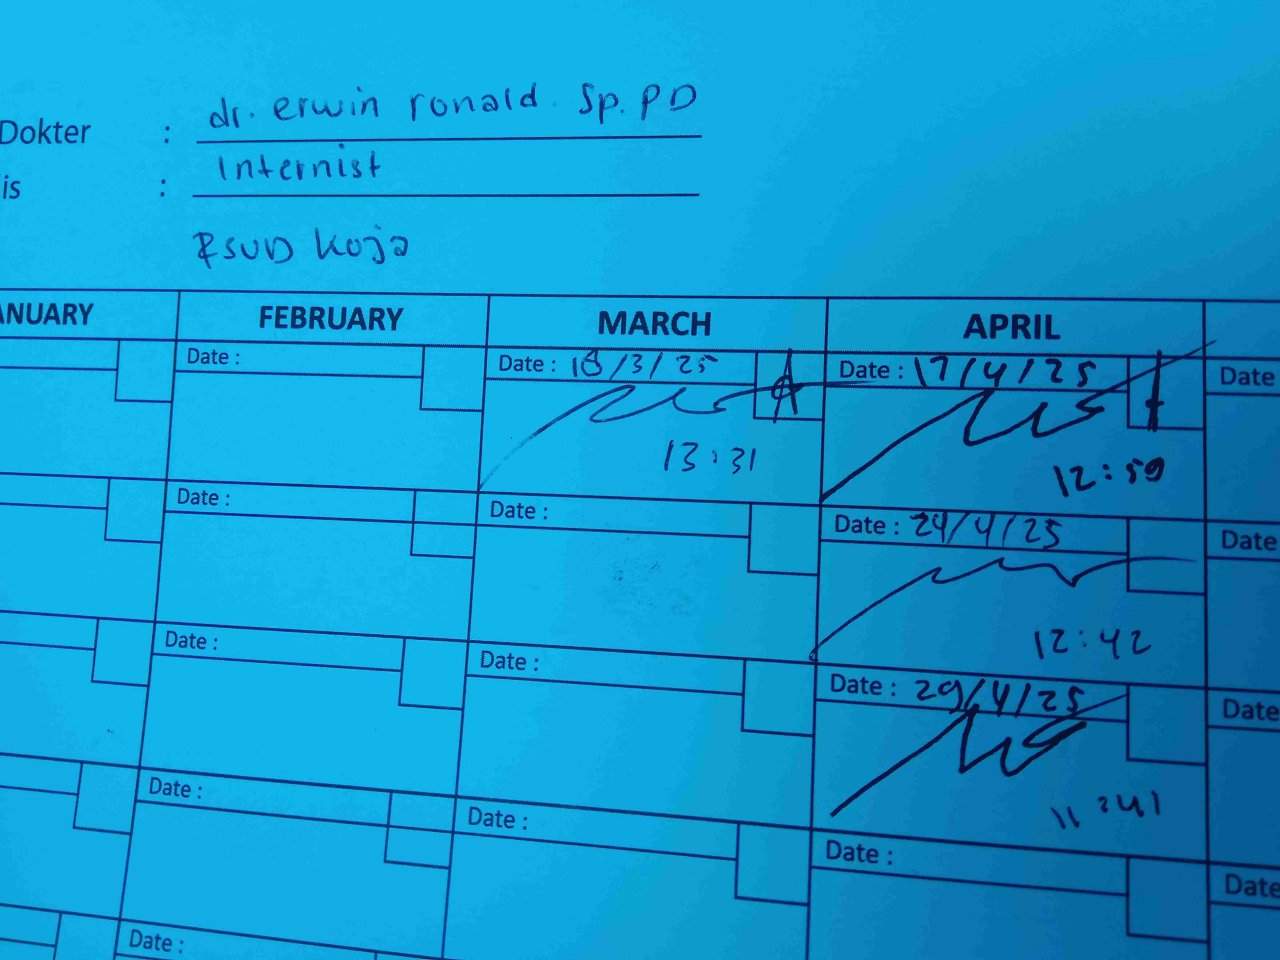 Dokter : dr. erwin ronald. Sp.PD
is : Internist
RSUD Koja
ANUARY FEBRUARY MARCH APRIL
Date : Date : 18/3/25 Date : 17/4/25 Date
13:31 12:59
Date : Date : Date : 24/4/25 Date
12:42
Date : Date : Date : 29/4/25 Date
11:41
Date : Date : Date : Date
Date :